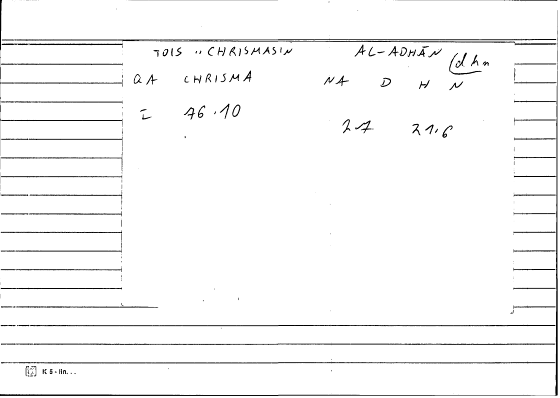 TOIS " CHRISMASIN AL-ADHĀN (dhn
QA CHRISMA NA D H N
I 76.10
27 21.6
K 5 - lin...